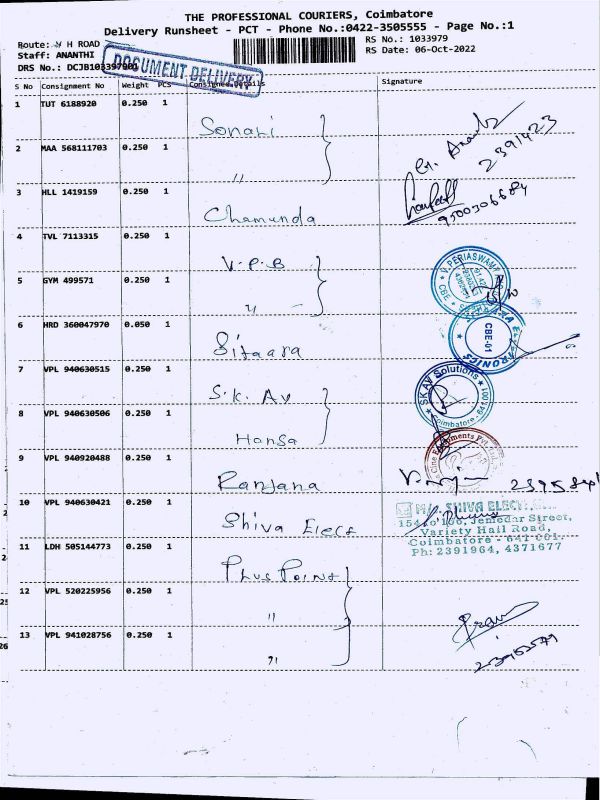 THE PROFESSIONAL COURIERS, Coimbatore
Delivery Runsheet - PCT - Phone No.:0422-3505555 - Page No.:1
Route: V H ROAD
RS No.: 1033979
Staff: ANANTHI
RS Date: 06-Oct-2022
DRS No.: DCJB103397901
DOCUMENT DELIVERY
S No Consignment No Weight PCS Consignee Details Signature
1 TUT 6188920 0.250 1 Sonali
2 MAA 568111703 0.250 1 "
2391423
3 HLL 1419159 0.250 1 Chamunda
9500306684
4 TVL 7113315 0.250 1 V.P.B
V.PERIASWAMY
CBE
5 GYM 499571 0.250 1 "
6 HRD 360047970 0.050 1 Sitaara
CBE-01
7 VPL 940630515 0.250 1 S.K. AV
SK AV Solutions
Coimbatore - 641 001
8 VPL 940630506 0.250 1 Hansa
9 VPL 940920488 0.250 1 Ranjana
10 VPL 940630421 0.250 1 Shiva Elecs
SHIVA ELEC
154 to 160, Jemedar Street,
Variety Hall Road,
Coimbatore - 641 001.
Ph: 2391964, 4371677
11 LDH 505144773 0.250 1 Plus Point
12 VPL 520225956 0.250 1 "
13 VPL 941028756 0.250 1 "